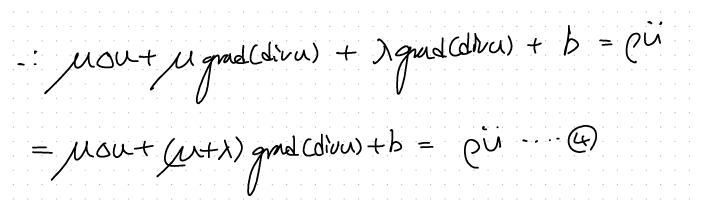 ∴ μΔu + μ grad(div u) + λ grad(div u) + b = ρü
= μΔu + (μ+λ) grad(div u) + b = ρü ····④